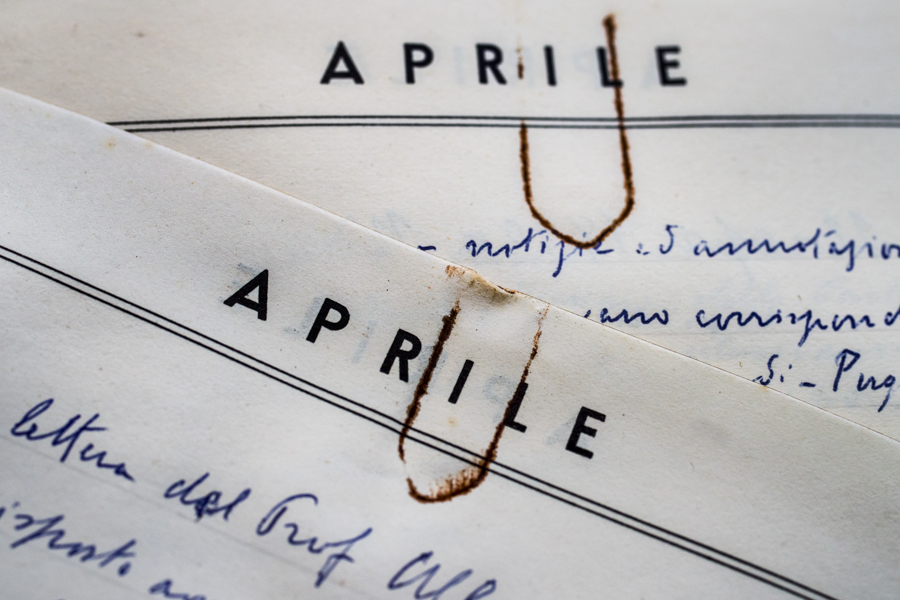 APRILE
- notizie ed annotazion
ano correspond
Si - Pug
APRILE
lettera del Prof
isposto